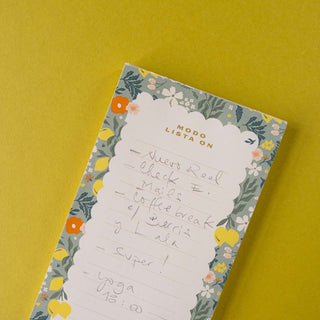 MODO
LISTA ON
- Nuevo Reel
- Check E.
Mails
- Coffee break
c/ Berris
y L
- Super!
- yoga
18:00